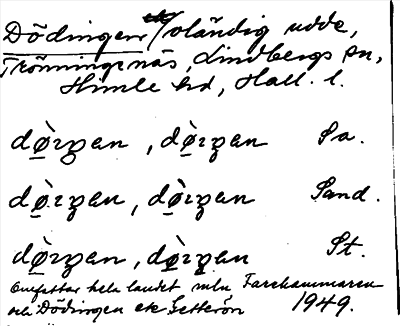 Dödingen, oländig udde,
Trönningenäs, Lindbergs sn,
Himle hd, Hall. l.
dø̀rɲan, dø̀rɲan Sa.
dø̀rɲan, dø̀rɲan Sand.
dø̀rɲan, dø̀rɲan St.
Omfattar hela landet mln Farehammaren
och Dödingen etc Getterön 1949.